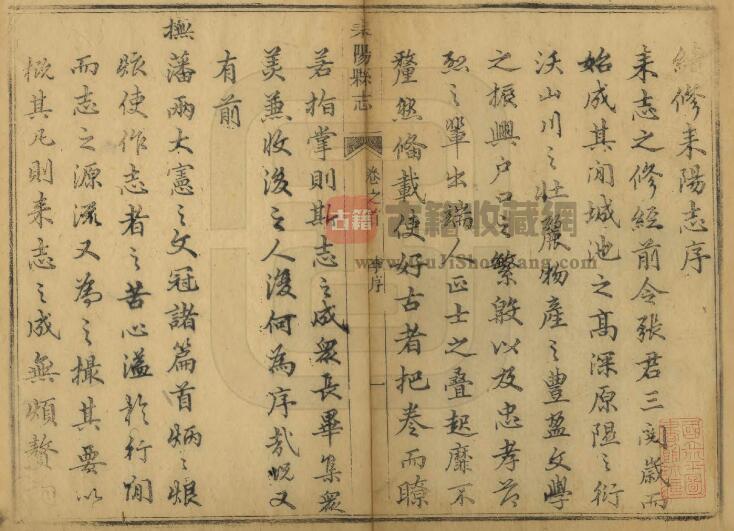 續修耒陽志序
耒志之修經前令張君三閱歲而
始成其間城池之高深原隰之衍
沃山川之壯麗物產之豐盈文學
之振興户口之繁殷以及忠孝節
烈之輩出端人正士之叠起靡不
釐然備載使好古者把卷而瞭
耒陽縣志
卷之
序
一
若指掌則斯志之成衆長畢集衆
美兼收後之人復何為序哉況又
有前
撫
藩兩大憲之文冠諸篇首炳之烺
烺使作志者之苦心溢於行間
而志之源流又為之撮其要以
概其凡則耒志之成無煩贅
古籍
古籍收藏網
www.GuJiShouCang.com